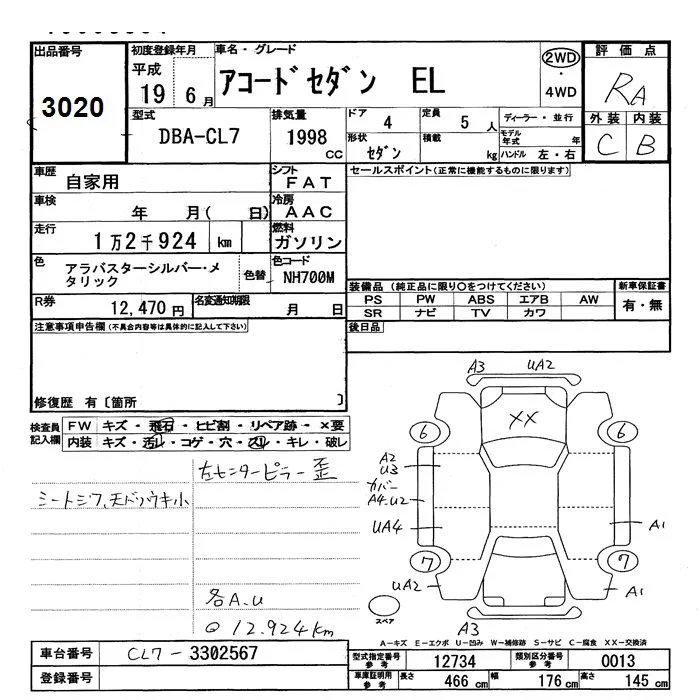 出品番号
3020
初度登録年月
平成
19 6月
車名・グレード
アコードセダン EL
2WD
・
4WD
評価点
RA
外装 内装
C B
型式
DBA-CL7
排気量
1998
CC
ドア
4
定員
5 人
ディーラー・並行
モデル年式 年
形状
セダン
積載
kg
ハンドル 左・右
車歴
自家用
シフト
FAT
セールスポイント(正常に機能するものに限ります)
車検
年 月( 日)
冷房
AAC
走行
1万2千924 km
燃料
ガソリン
色
アラバスターシルバー・メタリック
色替
色コード
NH700M
装備品 (純正品に限り○をつけてください)
新車保証書
PS PW ABS エアB AW
SR ナビ TV カワ
有・無
R券
12,470円
名変通知期限
月 日
後日品
注意事項申告欄(不具合内容等は具体的に記入して下さい)
修復歴 有〔箇所 〕
検査員記入欄
FW キズ・飛石・ヒビ割・リペア跡・×要
内装 キズ・汚レ・コゲ・穴・スレ・キレ・破レ
左センターピラー歪
シートシワ、天ドロウキ小
各A.U
12.924km
A3 UA2
XX
6 6
A2
U3
カバー
A4.U2
UA4
A1
7 7
UA2
A1
A3
スペア
A-キズ E-エクボ U-凹み W-補修跡 S-サビ C-腐食 XX-交換済
車台番号
CL7-3302567
登録番号
型式指定番号
参考
12734
類別区分番号
参考
0013
車庫証明用
参考
長さ 466 cm
幅 176 cm
高さ 145 cm